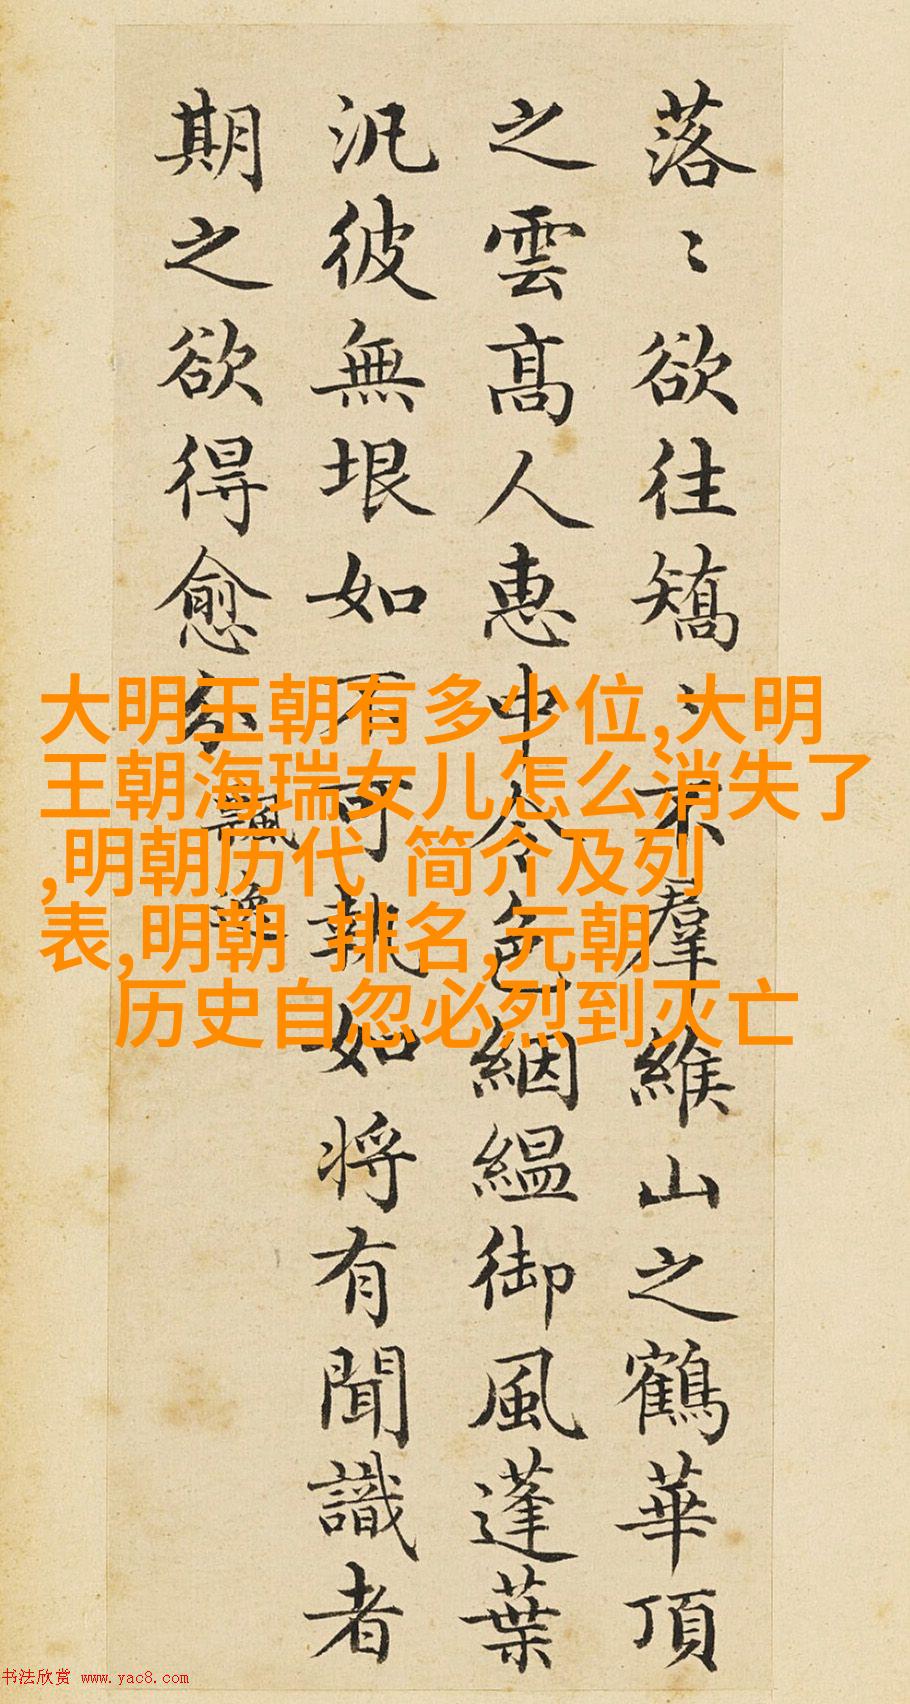 落〻欲往矯〻不羣緱山之鶴華頂
之雲高人惠中令色絪緼御風蓬葉
汎彼無垠如不可執如將有聞識者
期之欲得愈分
飄逸
大明王朝有多少位,大明
王朝海瑞女儿怎么消失了
,明朝历代 简介及列
表,明朝 排名,元朝
历史自忽必烈到灭亡
书法欣赏 www.yac8.com